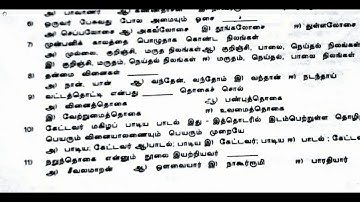 6) ஒருவர் பேசுவது போல அமையும் ஓசை
அ) செப்பலோசை ஆ) அகவலோசை இ) தூங்கலோசை ஈ) துள்ளலோசை
7) முன்பனிக் காலத்தை பொழுதாக கொண்ட நிலங்கள்
அ) முல்லை, குறிஞ்சி, மருத நிலங்கள் ஆ) குறிஞ்சி, பாலை, நெய்தல் நிலங்கள்
இ) குறிஞ்சி, மருதம், நெய்தல் நிலங்கள் ஈ) மருதம், நெய்தல், பாலை நிலங்கள்
8) தன்மை வினைகள்
அ) நான், யான் ஆ) வந்தேன், வந்தோம் இ) வந்தான் ஈ) நடந்தாய்
9) வட்டத்தொட்டி என்பது ______ தொகைச் சொல்
அ) வினைத்தொகை ஆ) பண்புத்தொகை
இ) வேற்றுமைத்தொகை ஈ) உவமைத்தொகை
10) கேட்டவர் மகிழப் பாடிய பாடல் இது - இத்தொடரில் இடம்பெற்றுள்ள தொழிற்
பெயரும் வினையாலணையும் பெயரும் முறையே
அ) பாடிய; கேட்டவர் ஆ)பாடல்; பாடிய இ) கேட்டவர்; பாடிய ஈ) பாடல் ; கேட்டவர்
11) நறுந்தொகை என்னும் நூலை இயற்றியவர் ______
அ) சீவலமாறன் ஆ) ஔவையார் இ) நாகூர்ரூமி ஈ) பாரதியார்